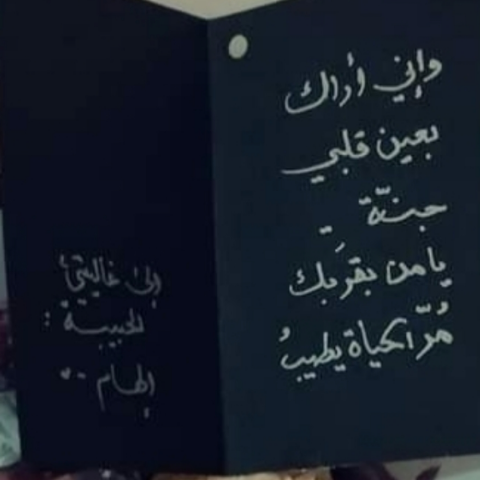 وإني أراك
بعين قلبي
جنّة
يا من بقرَبك
مُرّ الحياة يطيبُ
إلى غاليتي
الحبيبة :
إلهام ..